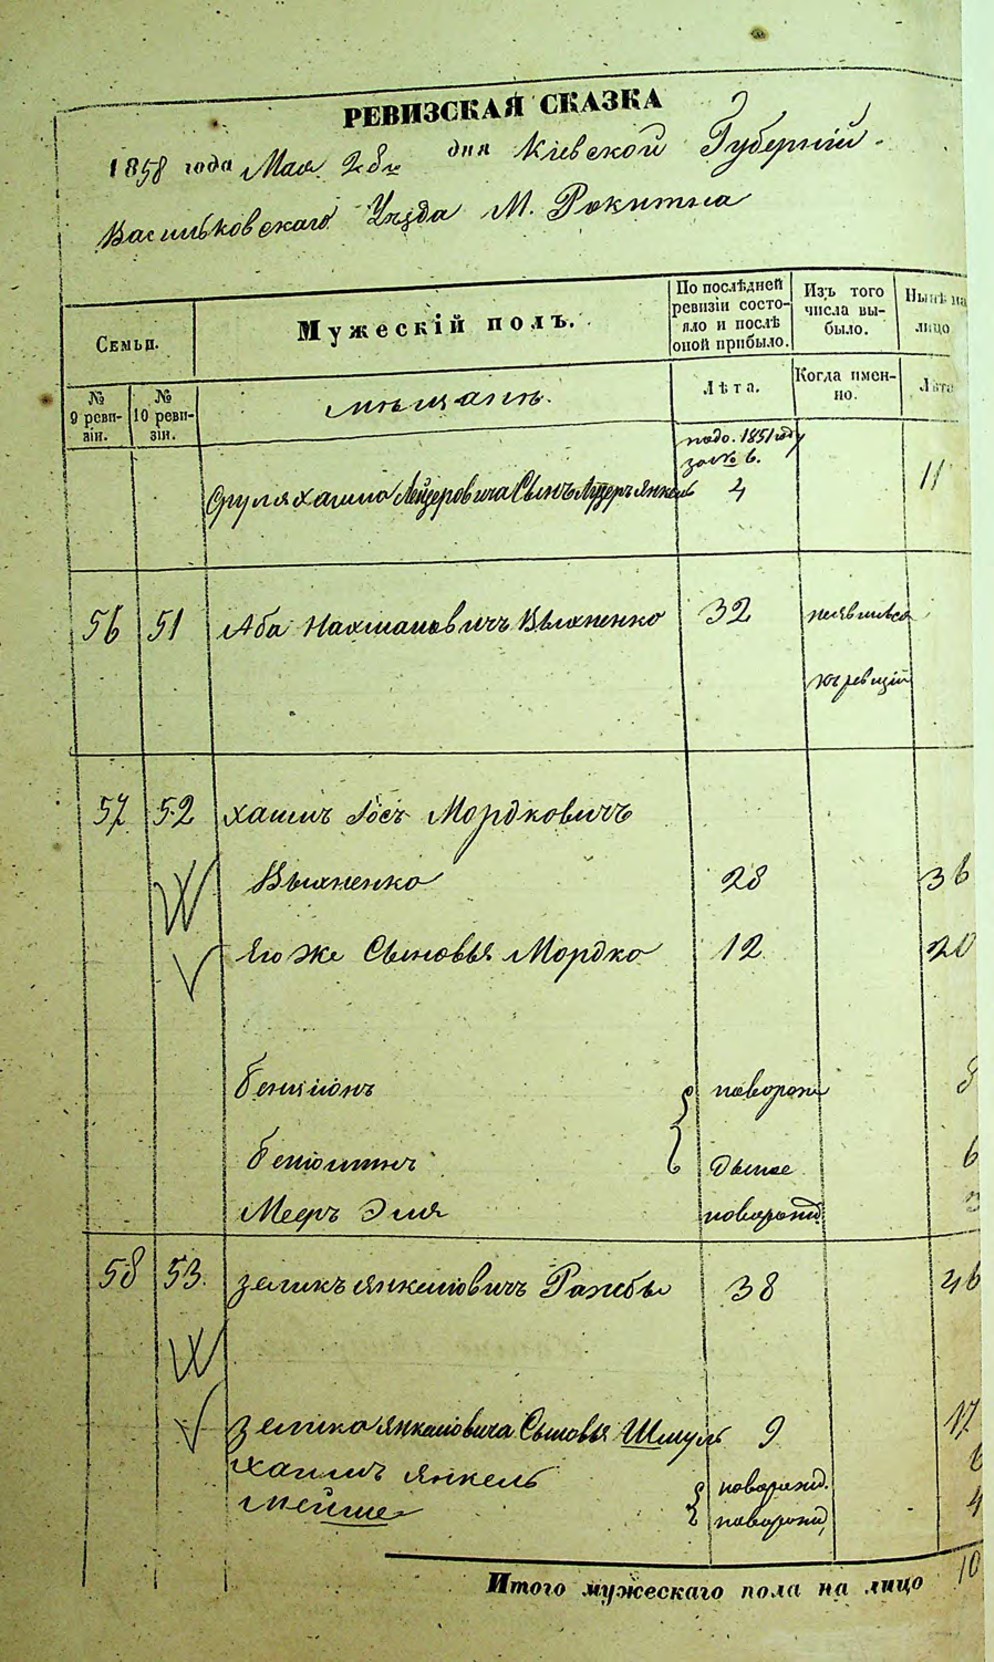 РЕВИЗСКАЯ СКАЗКА
1858 года Мая дня Кіевской Губерніи
Васильковскаго Уѣзда М. Рокитна
Семьи.
Мужескій полъ.
По послѣдней ревизіи состояло и послѣ оной прибыло.
Изъ того числа выбыло.
Нынѣ на лицо
№ 9 ревизіи.
№ 10 ревизіи.
мѣщане.
Лѣта.
Когда именно.
Лѣта
1851 году
Сруля Хаима Лейзеровича Сынъ Янкель 4 11
56 51 Аба Нахмановичъ Выхненко 32 неявился
къ ревизіи
57 52 Хаимъ Іосъ Мордковичъ
Выхненко 28 36
Его же Сыновья Мордко 12 20
Бенціонъ новорож 8
6
Меръ Эля новорожд
58 53. Зеликъ Янкелевичъ 38 46
Зелика Янкелевича Сыновья Шмуль 9 17
Хаимъ Янкель новорожд. 6
Мейше новорожд. 4
Итого мужескаго пола на лицо 10